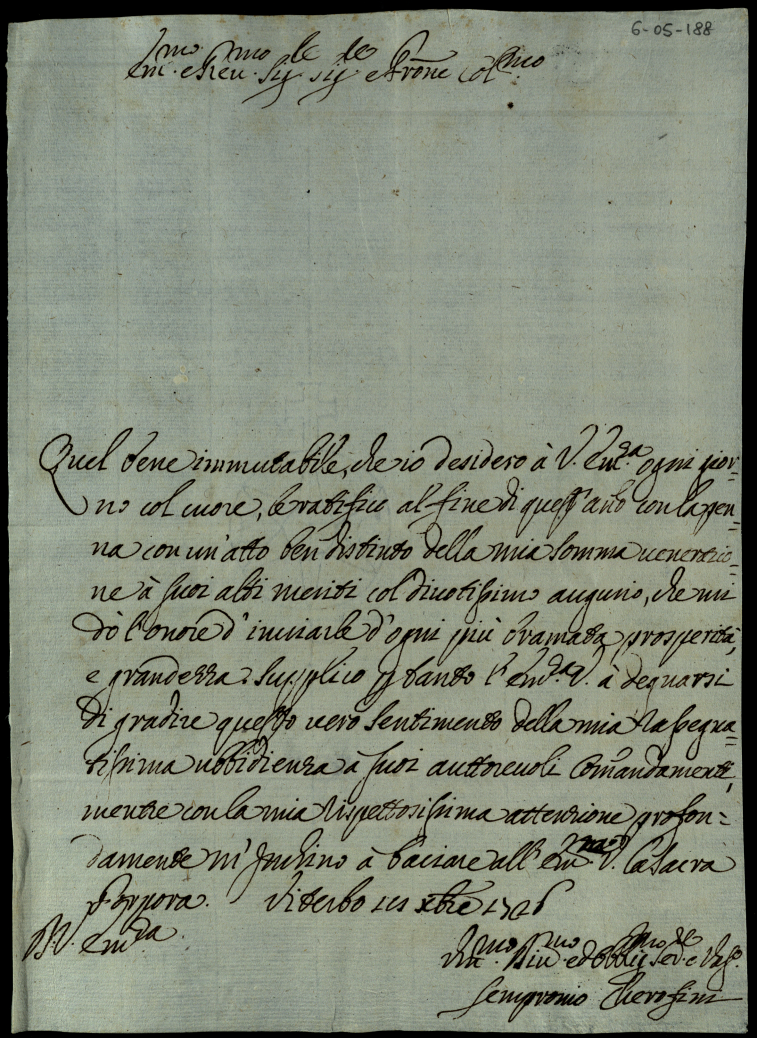 6-05-188
Em.mo e Reu.mo Sig.re Sig.re e Prõne Col.mo
Quel bene immutabile, che io desidero à V. Em.za ogni gior=
no col cuore, le ratifico al' fine di quest'año con la pen=
na con un'atto ben distinto della mia somma ueneratio=
ne à suoi alti meriti col diuotissimo augurio, che mi
dò l'onore d'inuiarle d'ogni più bramata prosperità,
e grandezza. Supplico p tanto l'Em.za V. à degnarsi
di gradire questo uero sentimento della mia rassegna=
tissima ubbidienza à suoi auttoreuoli Comandamenti,
mentre con la mia rispettosissima attenzione profon=
damente m'Inchino à baciare all' Em.za V. la Sacra
Porpora. Viterbo xbre 1726
D. V. Em.za
Um.mo Diu.mo ed Obblig.mo Ser.re
Sempronio